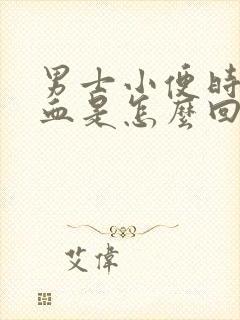 男士小便時
血是怎麼回
艾偉